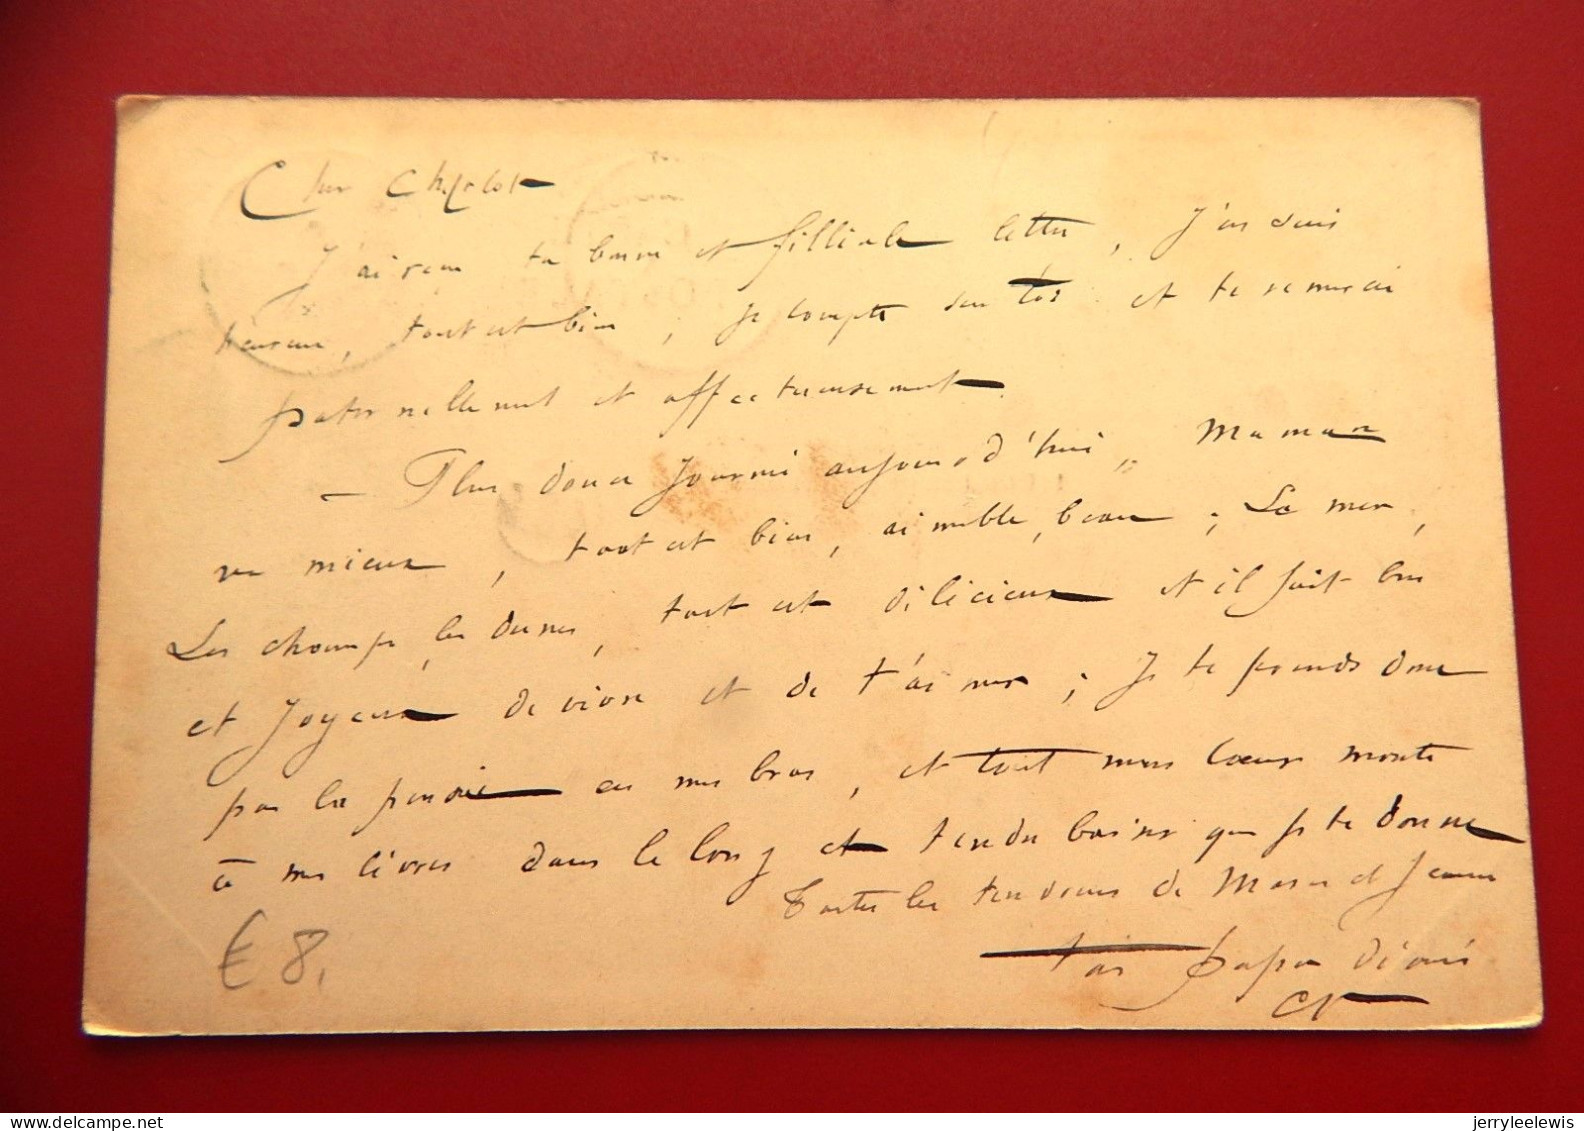 Cher Charlot
J'ai reçu ta bonne et filliale lettre, J'en suis
heureux, tout est bien, je compte sur toi et te remercie
paternellement et affectueusement.
— Plus douce journée aujourd'hui, Maman
va mieux, tout est bien, aimable, beau; La mer,
Les champs, les dunes, tout est délicieux et il fait bon
et joyeux de vivre et de t'aimer; Je te prends donc
par la pensée en mes bras, et tout mon cœur monte
à mes lèvres dans le long et tendre baiser que je te donne
Toutes les tendresses de Maman et Jeanne
ton papa
€ 8.
delcampe.net
jerryleelewis